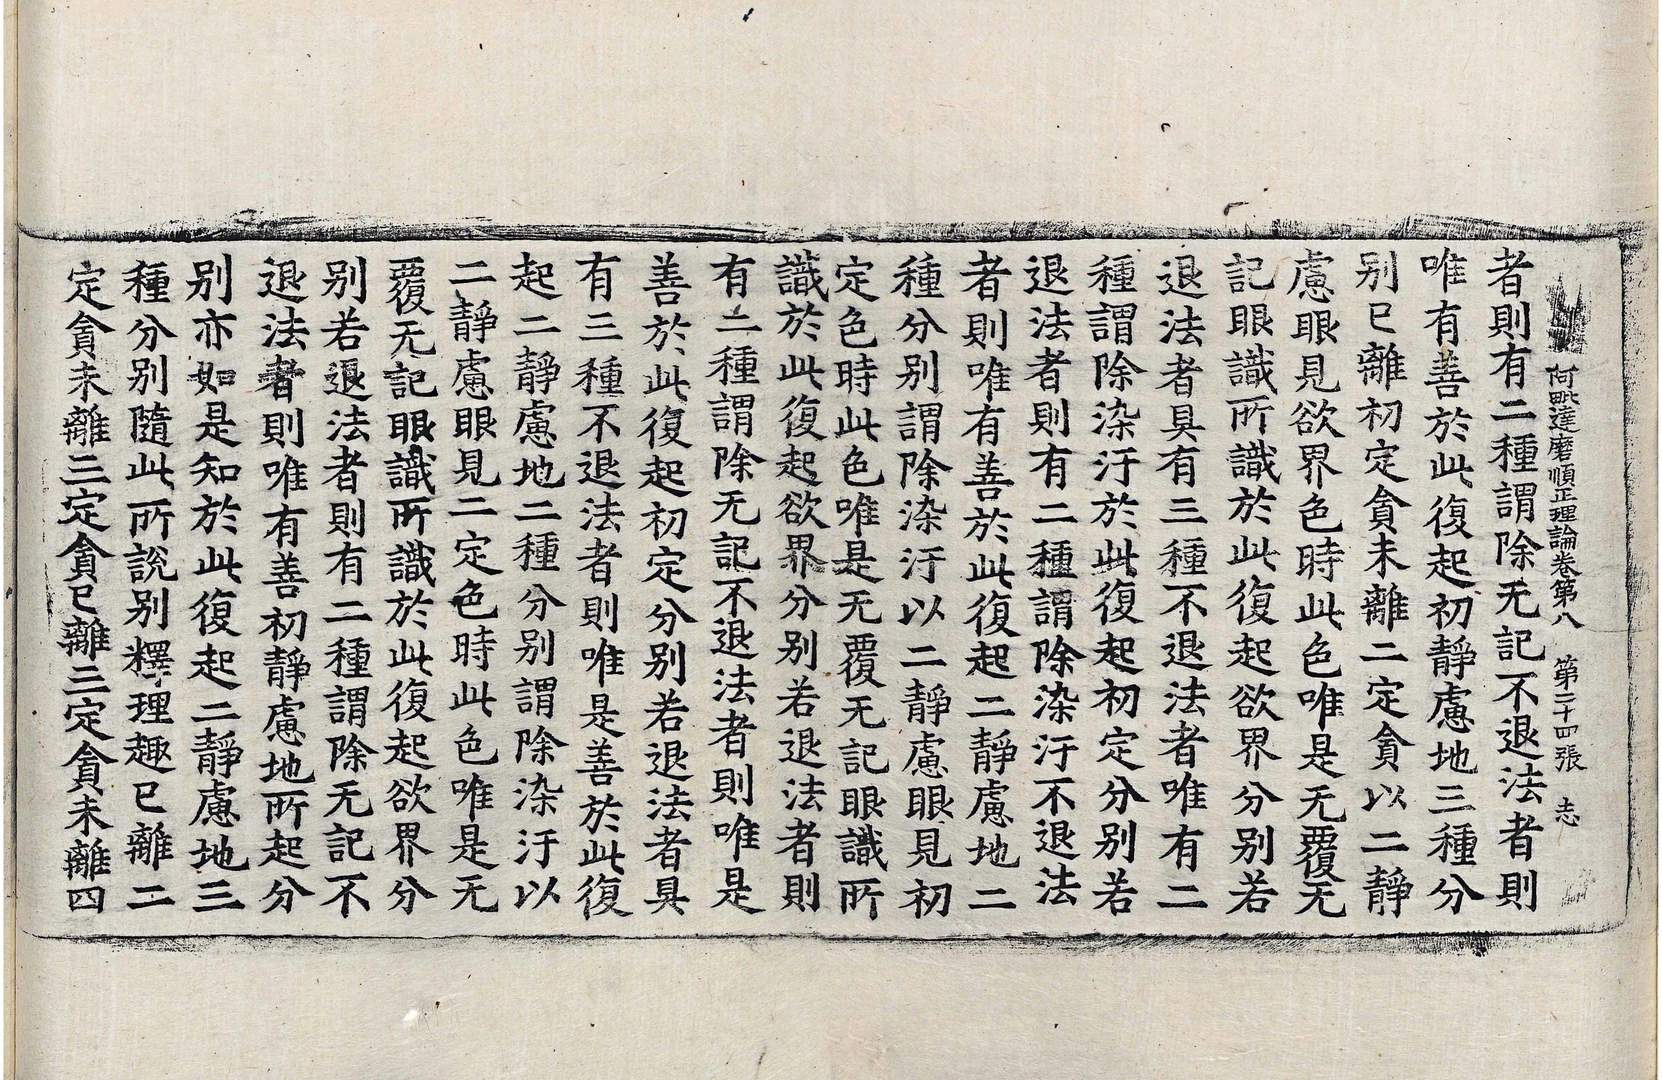 阿毗達磨順正理論卷第八 第二十四張 志
者則有二種謂除无記不退法者則
唯有善於此復起初靜慮地三種分
别已離初定貪未離二定貪以二靜
慮眼見欲界色時此色唯是无覆无
記眼識所識於此復起欲界分别若
退法者具有三種不退法者唯有二
種謂除染汙於此復起初定分别若
退法者則有二種謂除染汙不退法
者則唯有善於此復起二靜慮地二
種分别謂除染汙以二靜慮眼見初
定色時此色唯是无覆无記眼識所
識於此復起欲界分别若退法者則
有二種謂除无記不退法者則唯是
善於此復起初定分别若退法者具
有三種不退法者則唯是善於此復
起二靜慮地二種分别謂除染汙以
二靜慮眼見二定色時此色唯是无
覆无記眼識所識於此復起欲界分
别若退法者則有二種謂除无記不
退法者則唯有善初靜慮地所起分
别亦如是知於此復起二靜慮地三
種分别隨此所說别釋理趣已離二
定貪未離三定貪已離三定貪未離四